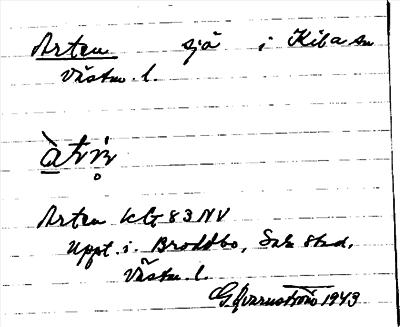 Arten sjö i Kila sn
Västm. l.
àtṇ
Arten kbl 83 NV
Uppt. i Broddbo, Sala stad,
Västm. l.
G. Qvarnström 1943